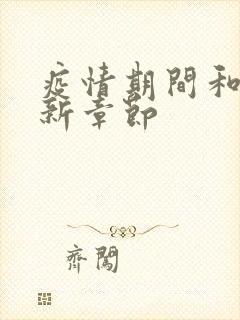 疫情期間和
新章節
齊闖